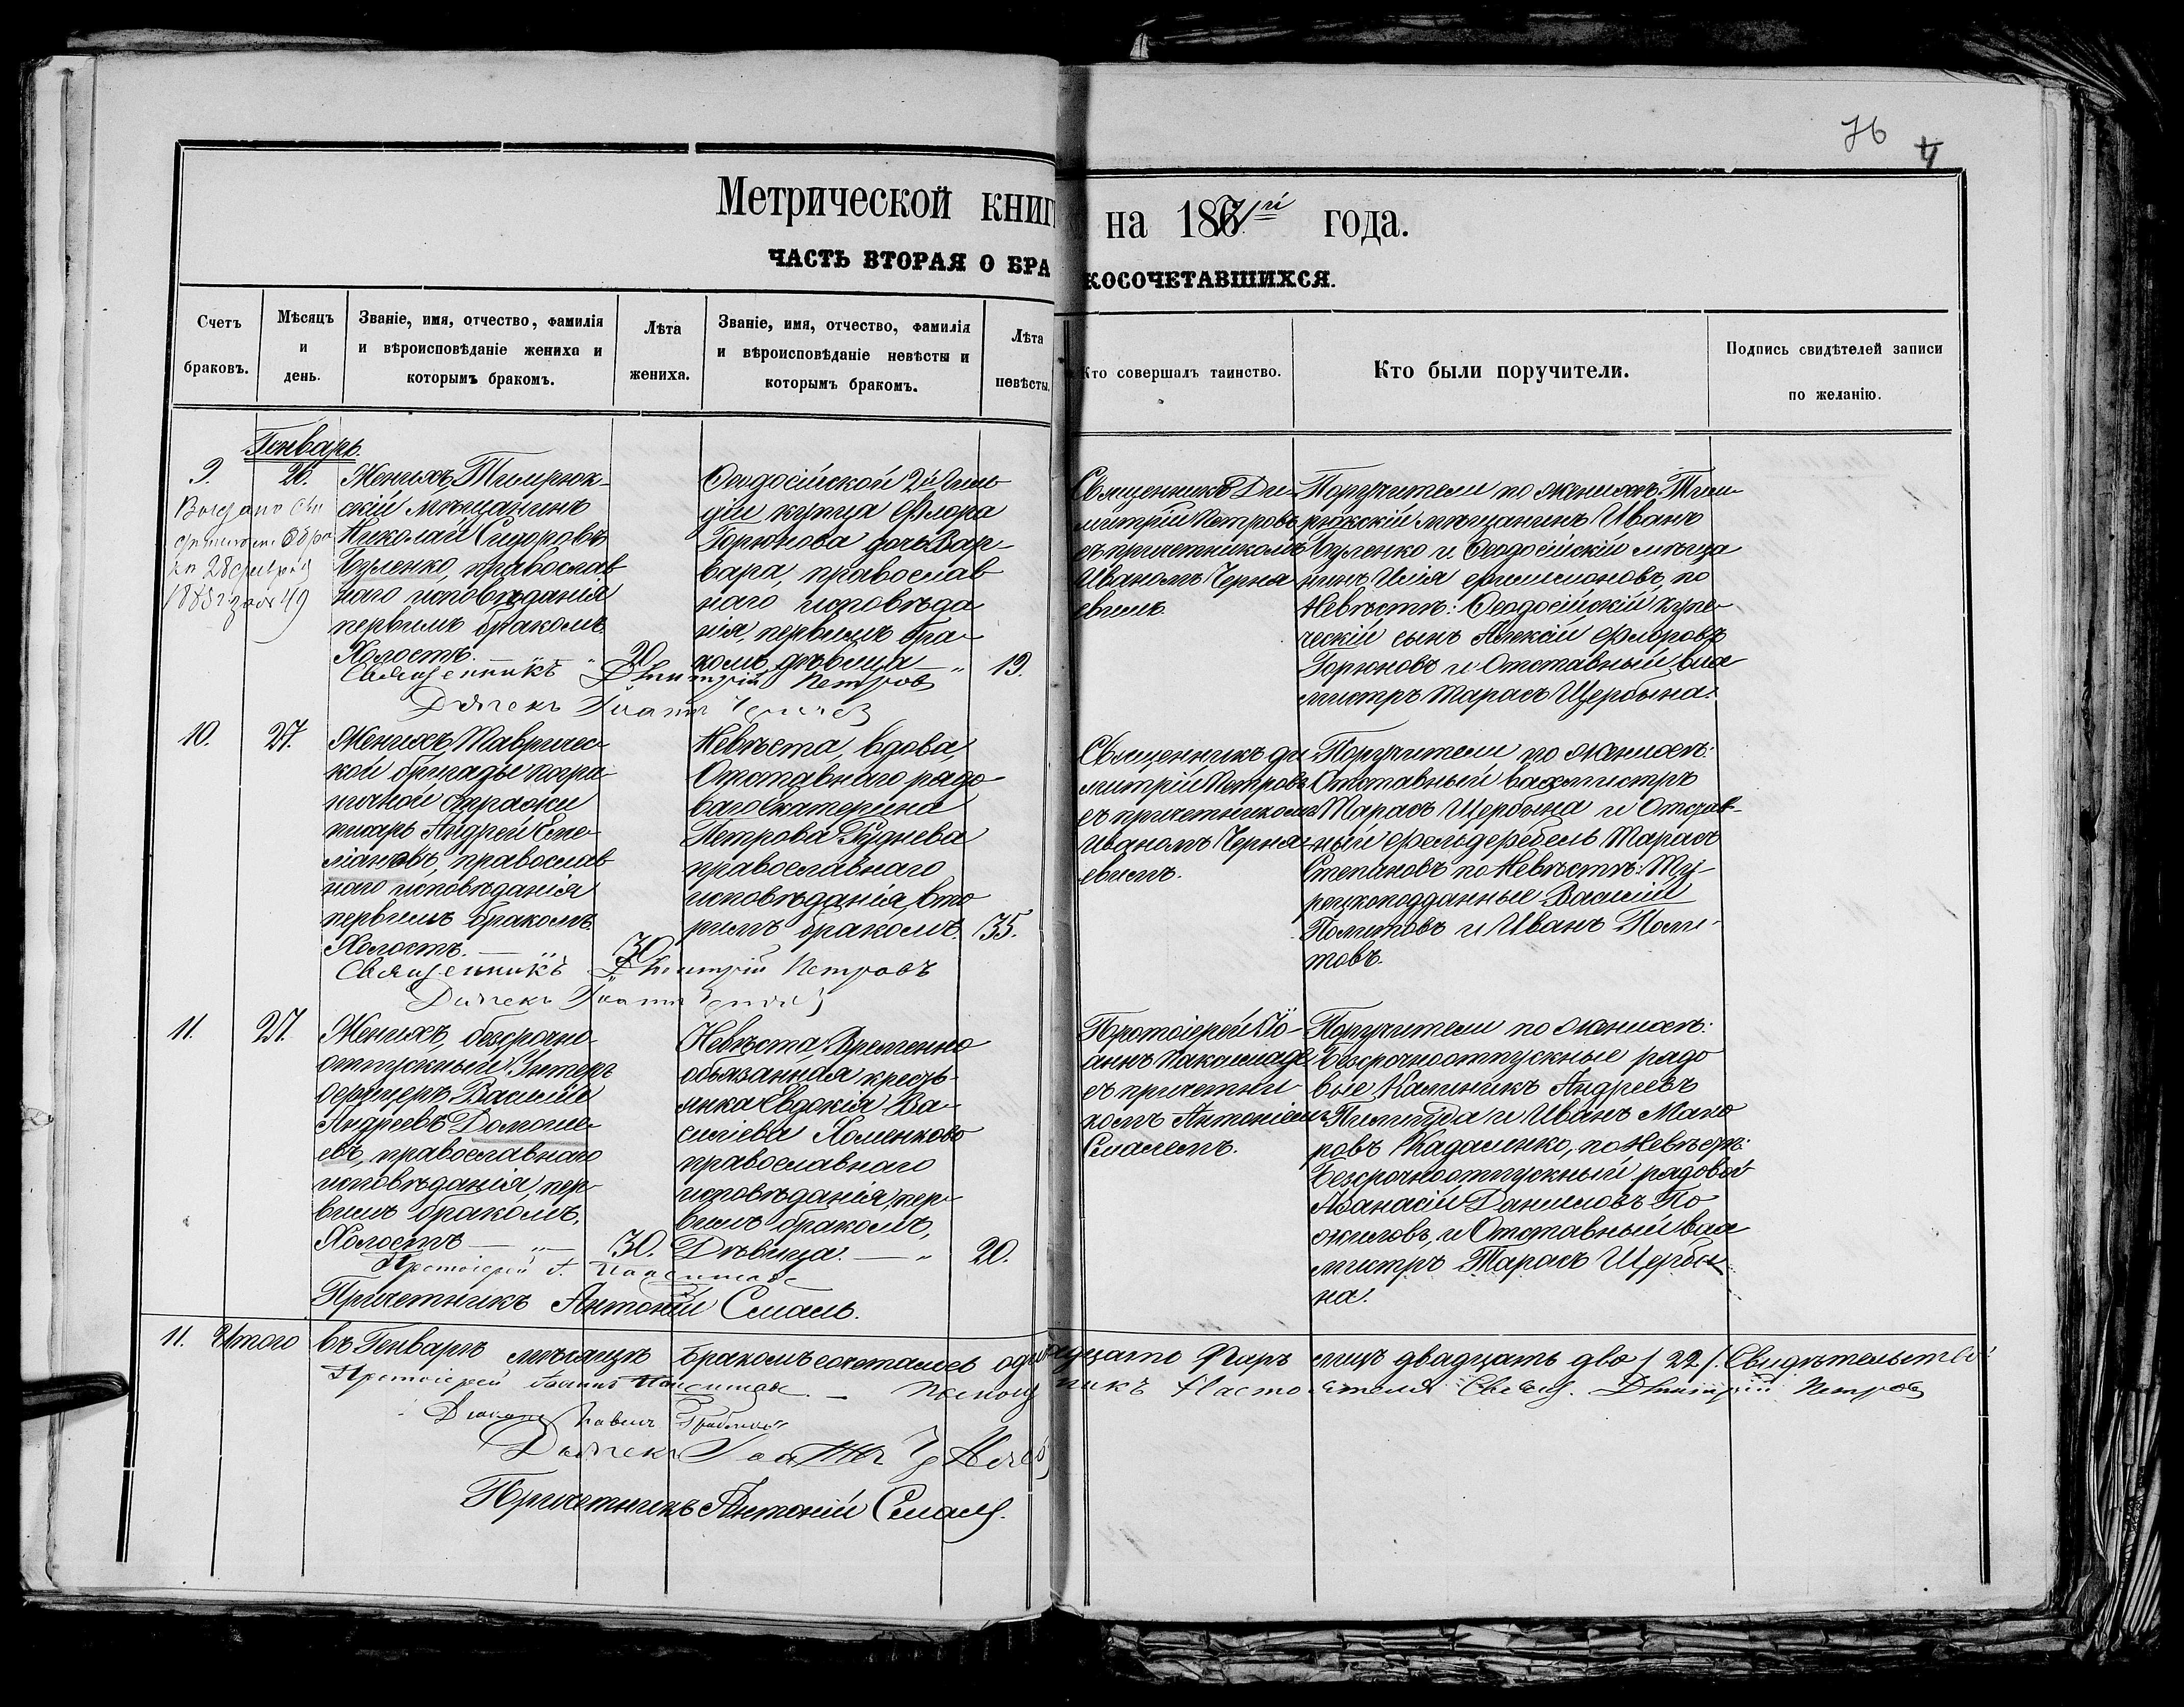 76
4
Метрической книг на 1867й года.
ЧАСТЬ ВТОРАЯ О БРАКОСОЧЕТАВШИХСЯ.
Счетъ браковъ.
Мѣсяцъ и день.
Званіе, имя, отчество, фамилія
и вѣроисповѣданіе жениха и
которымъ бракомъ.
Лѣта жениха.
Званіе, имя, отчество, фамилія
и вѣроисповѣданіе невѣсты и
которымъ бракомъ.
Лѣта невѣсты.
Кто совершалъ таинство.
Кто были поручители.
Подпись свидѣтелей записи
по желанію.
Генварь.
9.
26.
Женихъ Темрюк-
скій мѣщанинъ
Николай Сидоровъ
православ
наго исповѣданія
первымъ бракомъ.
Холостъ.
20.
Ѳеодосійской 2й Гиль
діи купца Флора
Горюнова дочь Вар-
вара, православ
наго исповѣда
нія, первымъ бра-
комъ, дѣвица
19.
Священникъ Ди-
митрій Петровъ
съ причетникомъ
Иваномъ Черня
евымъ.
Поручители по женихѣ: Тем-
рюкскій мѣщанинъ Иванъ
и Ѳеодосійскій мѣща
нинъ Илія Филимоновъ, по
Невѣстѣ: Ѳеодосійскій купе-
ческій сынъ Алексій Флоровъ
Горюновъ и Отставный вах
мистръ Тарасъ Щербина.
Священникъ Димитрій Петровъ
10.
27.
Женихъ, Тавричес-
кой бригады погра-
ничной стражи
писарь Андрей Еме-
ліановъ, православ
наго исповѣданія
первымъ бракомъ.
Холостъ.
30.
Невѣста вдова,
Отставнаго рядо
ваго Екатерина
Петрова Руднева
православнаго
исповѣданія, вто
рымъ бракомъ.
35.
Священникъ Ди
митрій Петровъ
съ причетникомъ
Иваномъ Черня-
евымъ.
Поручители по женихѣ:
Отставный вахмистръ
Тарасъ Щербина и Отстав-
ный фельдфебель Тарасъ
Степановъ по Невѣстѣ: Ту-
рецкоподданные Василій
и Иванъ
товъ.
Священникъ Димитрій Петровъ
11.
27.
Женихъ, безсрочно-
отпускный Унтеръ
офицеръ Василій
Андреевъ
евъ, православнаго
исповѣданія, пер-
вымъ бракомъ,
Холостъ
30.
Невѣста, Временно
обязанная кресть-
янка Евдокія Ва-
силіева Хоменково
православнаго
исповѣданія, пер-
вымъ бракомъ,
Дѣвица.
20.
Протоіерей Іо-
аннъ
съ причетни-
комъ Антоніемъ
Смалемъ.
Поручители по женихѣ:
Безсрочноотпускные рядо
вые Калинникъ Андреевъ
и Иванъ Мака
ровъ Кадаменко, по Невѣстѣ:
Безсрочноотпускный рядовой
Аѳанасій Даниловъ По
жиловъ, и Отставный вах
мистръ Тарасъ Щерби
на.
Причетникъ Антоній Смаль.
11. Итого въ Генварѣ мѣсяцѣ бракомъ сочеталось одинадцать паръ лицъ двадцать два /22/. Свидѣтельств
Священ. Димитрій Петровъ
Причетникъ Антоній Смаль.